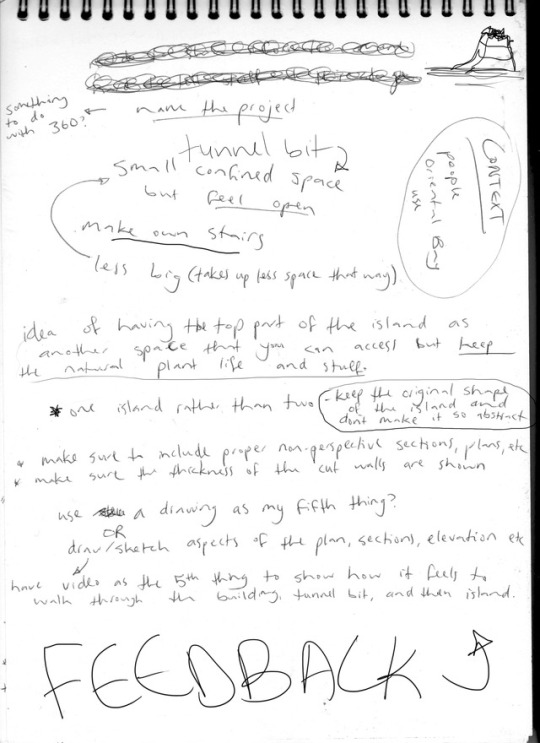 something
to do
with 360?
name the project
tunnel bit
small confined space
but feel open
make own stairs
less big (takes up less space that way)
CONTEXT
people
Oriental Bay
use
idea of having the top part of the island as
another space that you can access but keep
the natural plant life and stuff.
* one island rather than two
- keep the original shape
of the island and
dont make it so abstract
* make sure to include proper non-perspective sections, plans, etc
* make sure the thickness of the cut walls are shown
use a drawing as my fifth thing?
OR
draw/sketch aspects of the plan, sections, elevation etc
have video as the 5th thing to show how it feels to
walk through the building, tunnel bit, and then island.
FEEDBACK